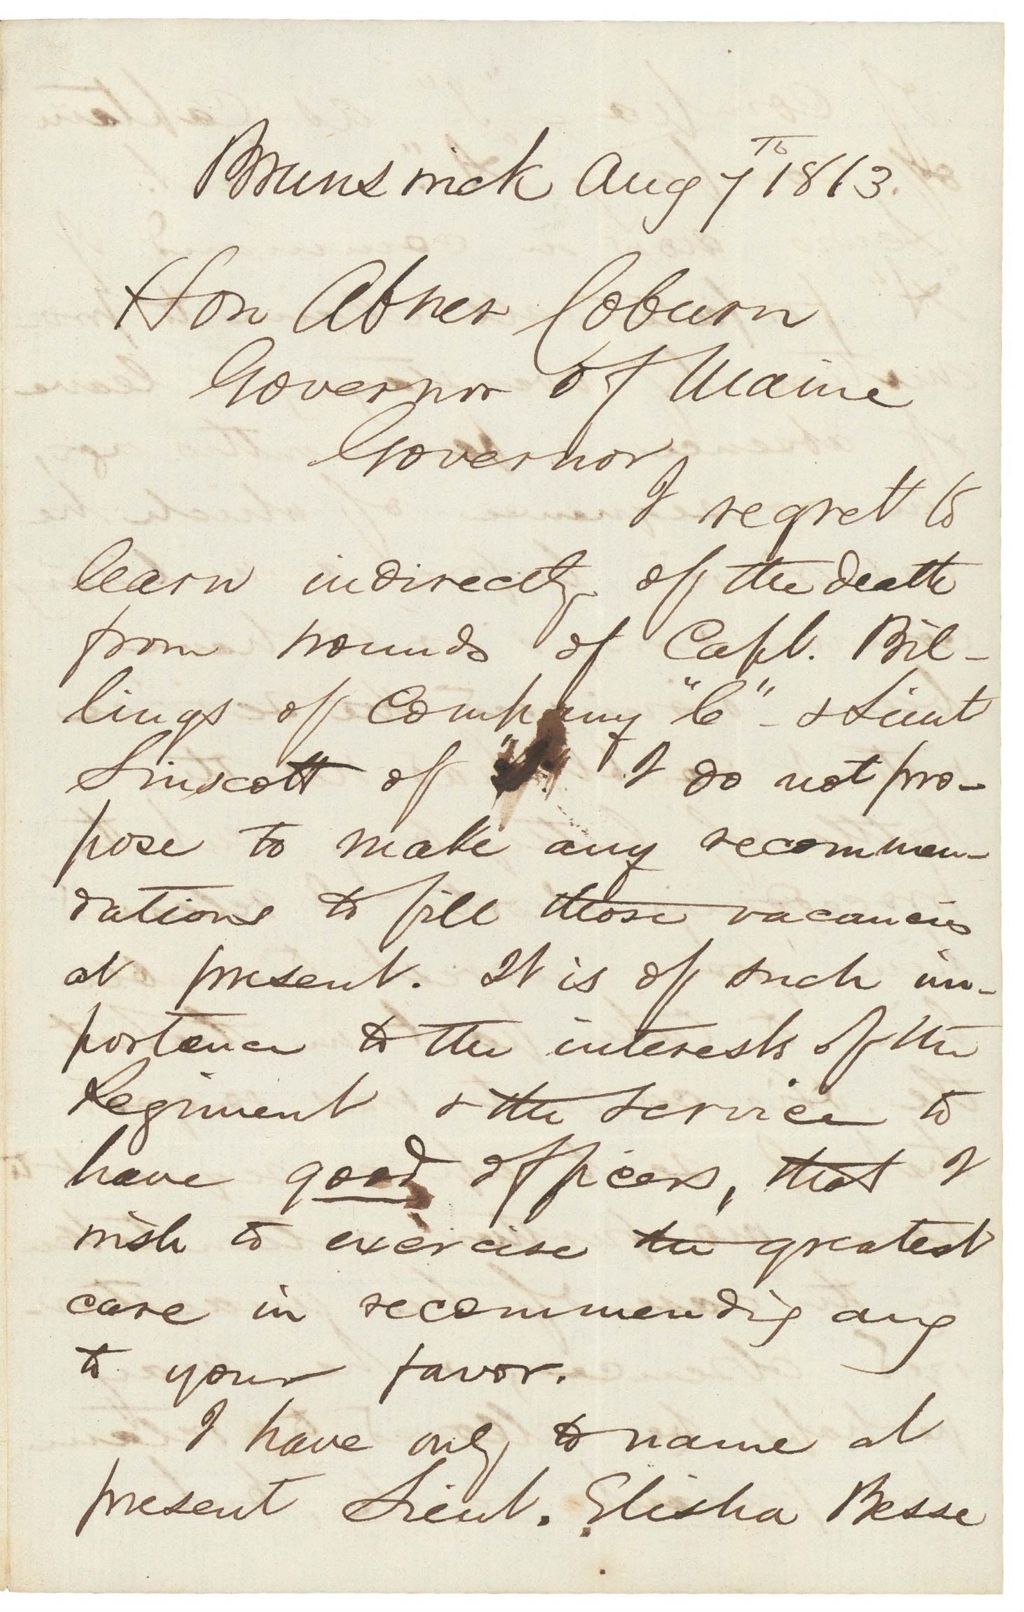 Brunswick Aug 7th 1863.
Hon Abner Coburn
Governor of Maine
Governor,
I regret to
learn indirectly of the death
from wounds of Capt. Bil-
lings of Company "C" & Lieut
Linscott of I do not pro-
pose to make any recommen-
dations to fill those vacancies
at present. It is of such im-
portance to the interests of the
Regiment & the service to
have good officers, that I
wish to exercise the greatest
care in recommendig any
to your favor.
I have only to name at
present Lieut. Elisha Besse